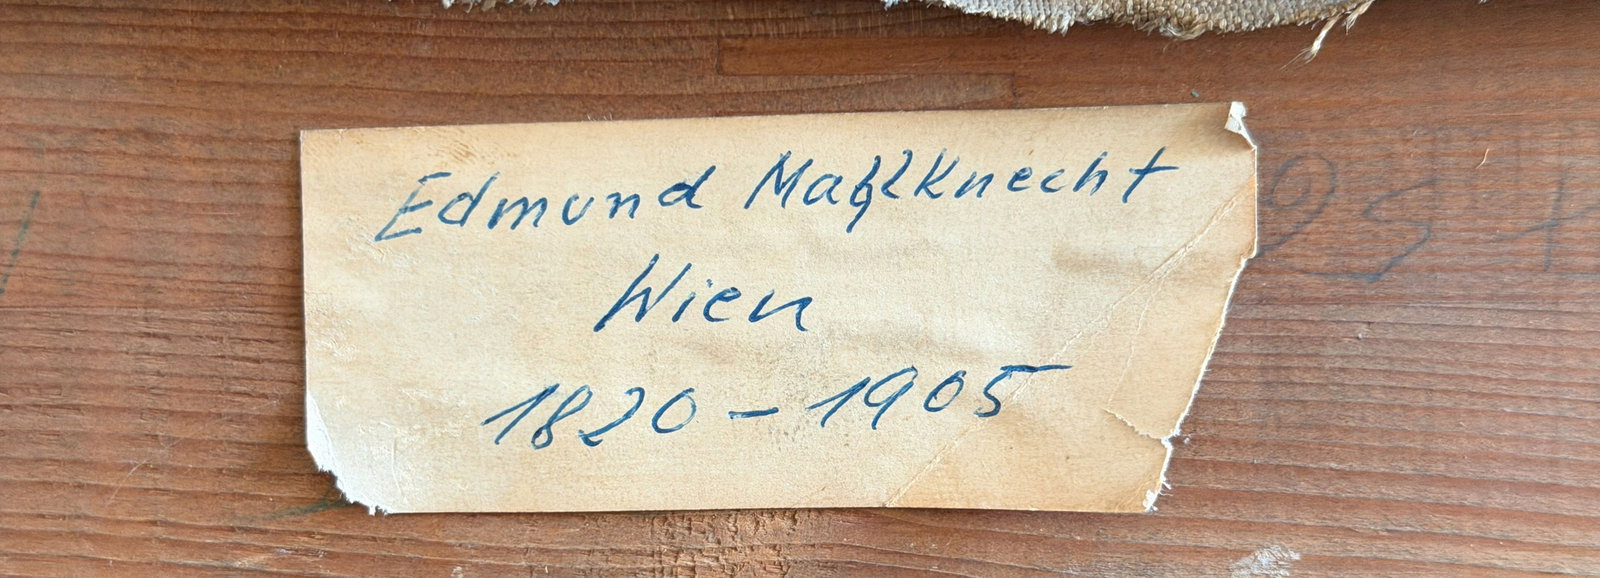 Edmund Mahlknecht
Wien
1820 - 1905